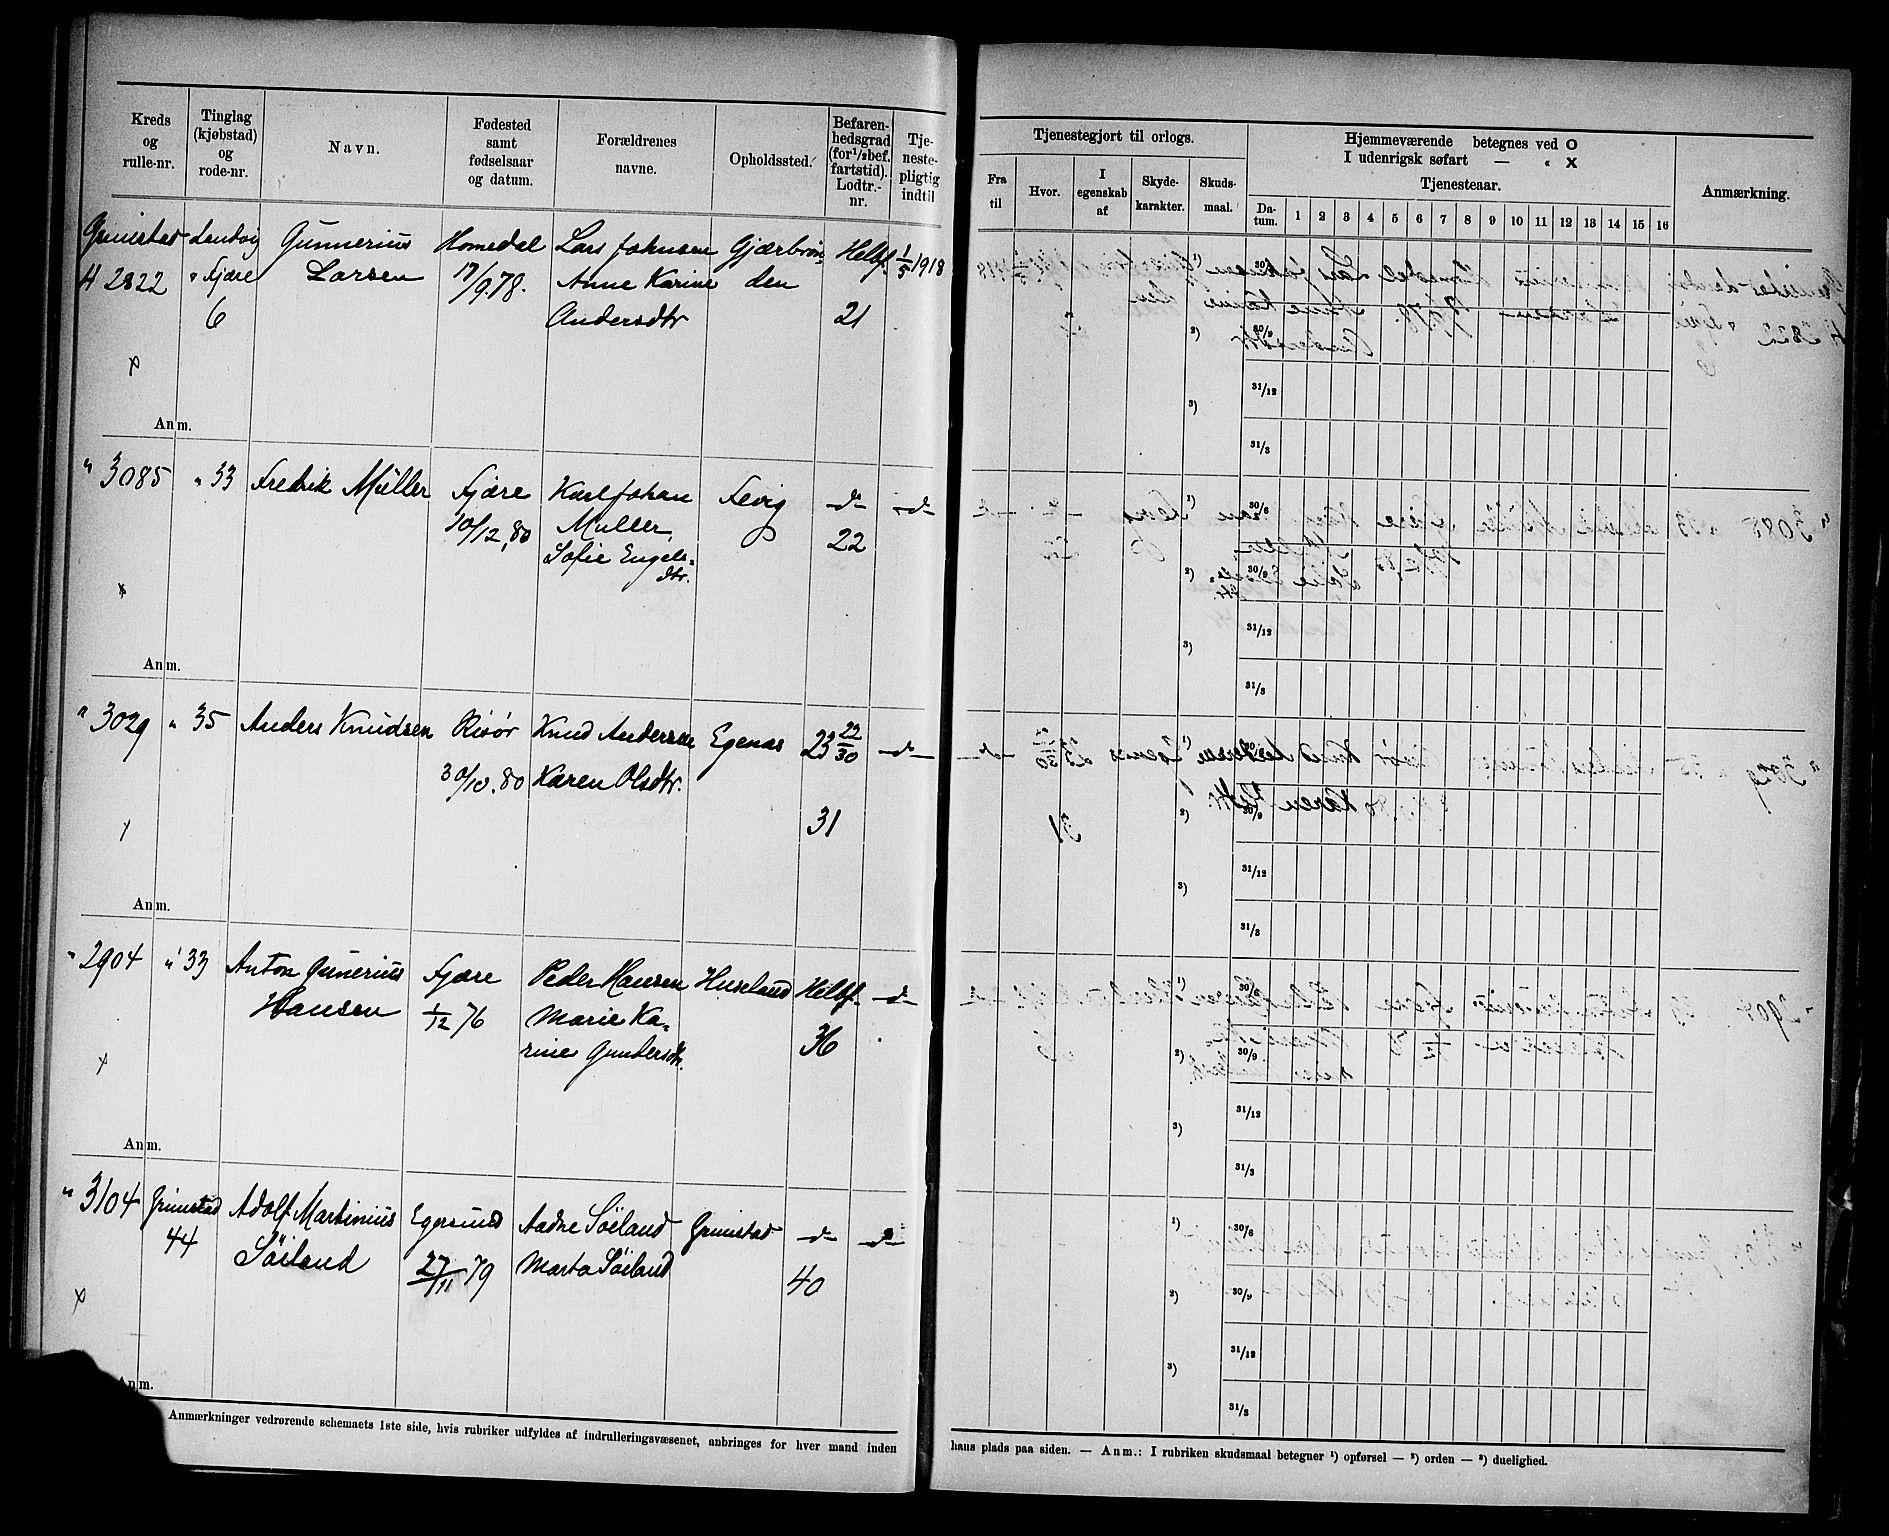 Kreds og rulle-nr.
Tinglag (kjøbstad) og rode-nr.
Navn.
Fødested samt fødselsaar og datum.
Forældrenes navne.
Opholdssted.
Befaren-hedsgrad (for 1/2 bef. fartstid). Lodtr.-nr.
Tje-neste-pligtig indtil
Grimstad Landvig Gunnerius Homedal Lars Johnsen Gjærbrøn- Helbf. 1/5 1918
H 2822 " Fjære Larsen 17/9.78. Anne Karine den
6 Andersdtr 21
x
Anm.
" 3085 " 33 Fredrik Müller Fjære Karl Johan Fevig -d- -d-
10/12.80 Müller, 22
Sofie Engels=
dtr.
x
Anm.
" 3029 " 35 Anders Knudsen Risør Knud Andersen Egenas 23 22/30 -d-
30/10.80 Karen Olsdtr.
31
x
Anm.
" 2904 " 33 Anton Gunerius Fjære Peder Hansen Huseland Helbf. -d-
Hansen 1/12 76 Marie Ka= 36
rine Gundersdtr.
x
Anm.
" 3104 Grimstad Adolf Martinius Egersund Aadne Söiland Grimstad -d- -d-
44 Söiland 27/11 79 Marta Söiland 40
x
Anm.
Anmærkninger vedrørende schemaets 1ste side, hvis rubriker udfyldes af indrulleringsvæsenet, anbringes for hver mand inden
Tjenestegjort til orlogs.
Fra til
Hvor.
I egenskab af
Skyde-karakter.
Skuds-maal.
Hjemmeværende betegnes ved O
I udenrigsk søfart — " X
Tjenesteaar.
Da-tum. 1 2 3 4 5 6 7 8 9 10 11 12 13 14 15 16
Anmærkning.
1) 30/6
2) 30/9
31/12
3)
31/3
1) 30/6
2) 30/9
31/12
3)
31/3
1) 30/6
2) 30/9
31/12
3)
31/3
1) 30/6
2) 30/9
31/12
3)
31/3
1) 30/6
2) 30/9
31/12
3)
31/3
hans plads paa siden. — Anm.: I rubriken skudsmaal betegner 1) opførsel — 2) orden — 3) duelighed.